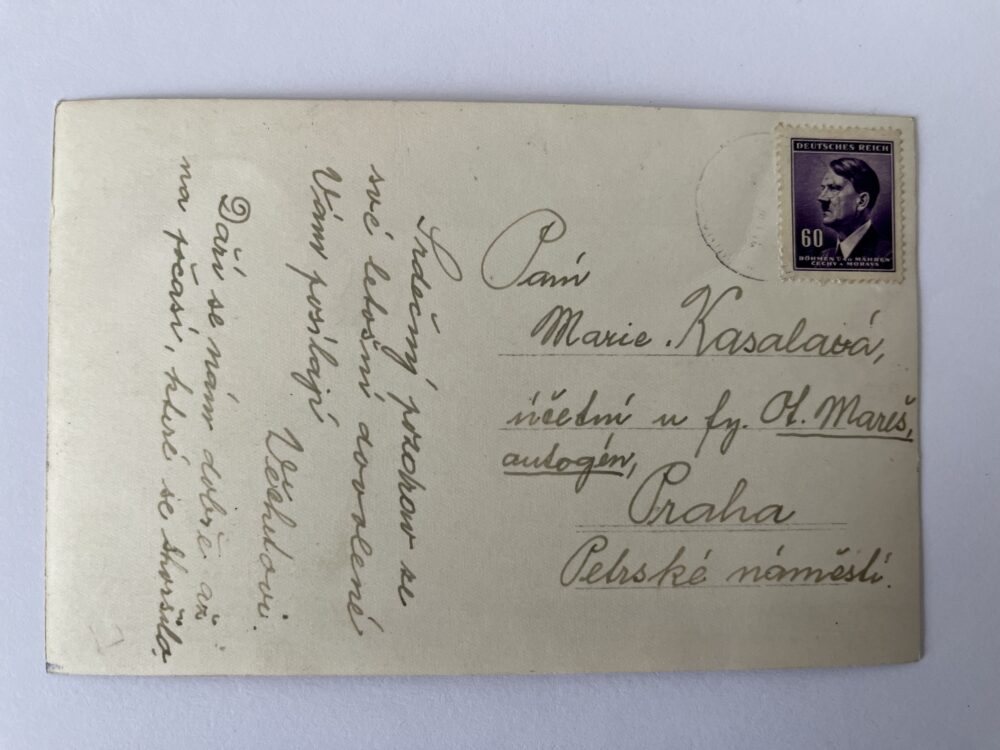 Srdečný pozdrav ze
své letošní dovolené
Vám posílají
Věchetovi.
Daří se nám dobře až
na počasí, které se zhoršilo.
DEUTSCHES REICH
60
BÖHMEN U. MÄHREN
ČECHY A MORAVA
Paní
Marie Kasalová,
účetní u fy. Ot. Mareš,
autogén,
Praha
Petrské náměstí.